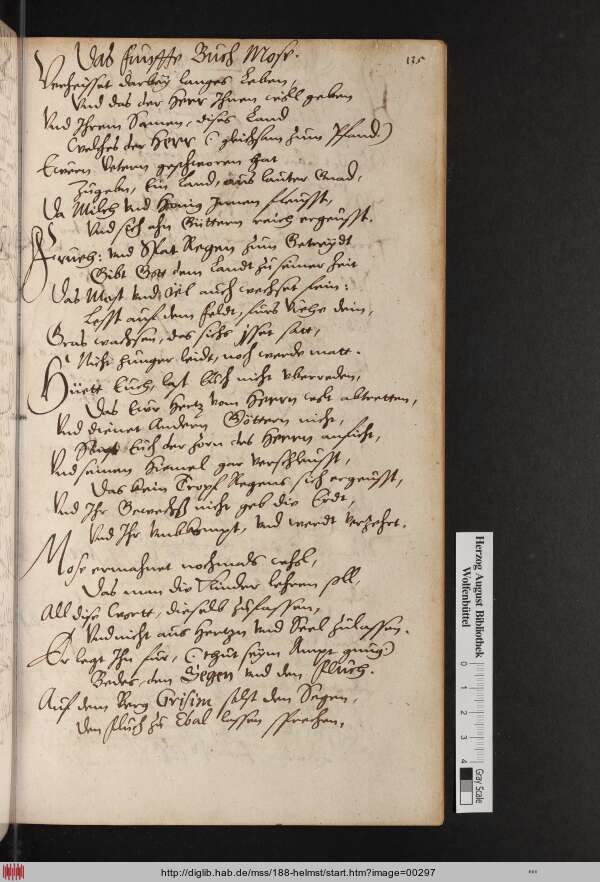 Das fünffte Buch Mose.
135
Verheisset darbey langes Leben,
Und das der Herr Ihnen will geben
Und Ihrem Samen, dises Land
Welches der Herr (gleichsam zum Pfand)
Ewern Vetern geschworen hat
Zugeben, Ein Land, aus lauter Gnad,
Da Milch und Honig Innen fleusst,
Und sich ahn Güttern reich ergeusst.
Frueh: und Spat Regen zum Getreydt
Gibt Gott dem Landt zu seiner Zeit
Das Most und Oel auch wechset fein:
Lesst auf dem Feldt, furs Viehe dein,
Gras wachsen, das sichs isset satt,
Nicht hunger leidt, noch werde matt.
Hüett Euch, last Euch nicht uberreden,
Das Ewr Hertz vom Herrn abtretten,
Und dienet Andern Göttern nicht,
Euch der Zorn des Herrn anficht,
Und seinen Himel gar verschleusst,
Das kein Tropf Regens sich ergeusst,
Und Ihr Gewechß nicht geb die Erdt,
Und Ihr umbkompt, und werdt verzehrt.
Mose ermahnet nochmals wohl,
Das man die Kinder lehren soll,
All dise Wortt, dieselb zufassen,
Und nicht aus Hertzn und Seel zulassen.
Er legt Ihn für, (thut seym Ampt gnug)
Bedes, den Segen und den Fluch.
Auf dem Berg Grisim solst den Segen,
Den Fluch zu Ebal lassen sprechen,
Herzog August Bibliothek
Wolfenbüttel
0 1 2 3 4
Gray Scale
http://diglib.hab.de/mss/188-helmst/start.htm?image=00297